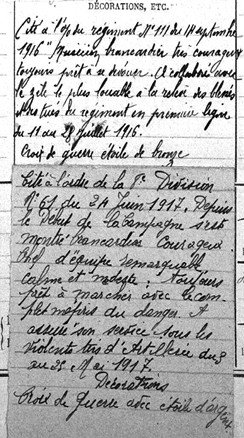 DÉCORATIONS, ETC.
Cité à l'Op du régiment N° 111 du 14 septembre
1916 "Musicien brancardier très courageux
toujours prêt à se dévouer. A collaboré avec
le zèle le plus louable à la relève des blessés
du régiment en première ligne
du 11 au 28 juillet 1916.
Croix de guerre étoile de bronze
Cité à l'ordre de la Division
N° 61 du 24 Juin 1917. Depuis
le début de la Campagne s'est
montré brancardier Courageux
Chef d'équipe remarquable
calme et modeste; toujours
prêt à marcher avec le com-
plet mépris du danger. A
assuré son service sous les
violents tirs d'Artillerie du 9
au 25 Mai 1917.
Décorations
Croix de Guerre avec étoile d'argent